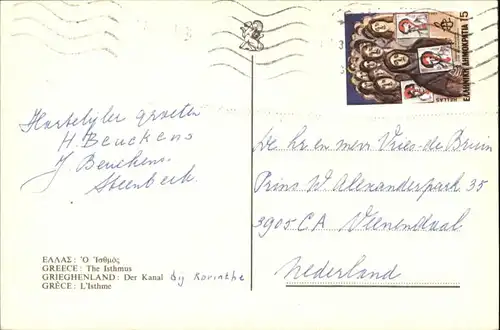 ΕΛΛΗΝΙΚΗ ΔΗΜΟΚΡΑΤΙΑ 15
HELLAS
Hartelijke groeten
H. Beuckens
J. Beuckens
Steenbeek
De hr. en mevr Vries-de Bruin
Prins W. Alexanderpark 35
3905 CA Veenendaal
Nederland
ΕΛΛΑΣ: Ὁ Ἰσθμὸς
GREECE: The Isthmus
GRIEGHENLAND: Der Kanal bij Korinthe
GRÈCE: L'Isthme